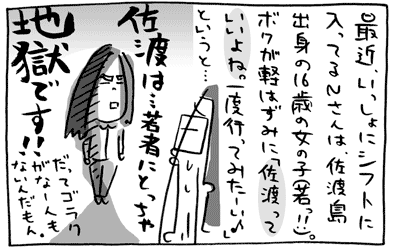 最近、いっしょにシフトに
入ってるNさんは、佐渡島
出身の16歳の女の子(若っ!!)。
ボクが軽はずみに「佐渡って
いいよね。一度行ってみたーい♪」
というと…
佐渡は…若者にとっちゃ
地獄です!!
だってゴラク
がなーんも
ないんだもん。